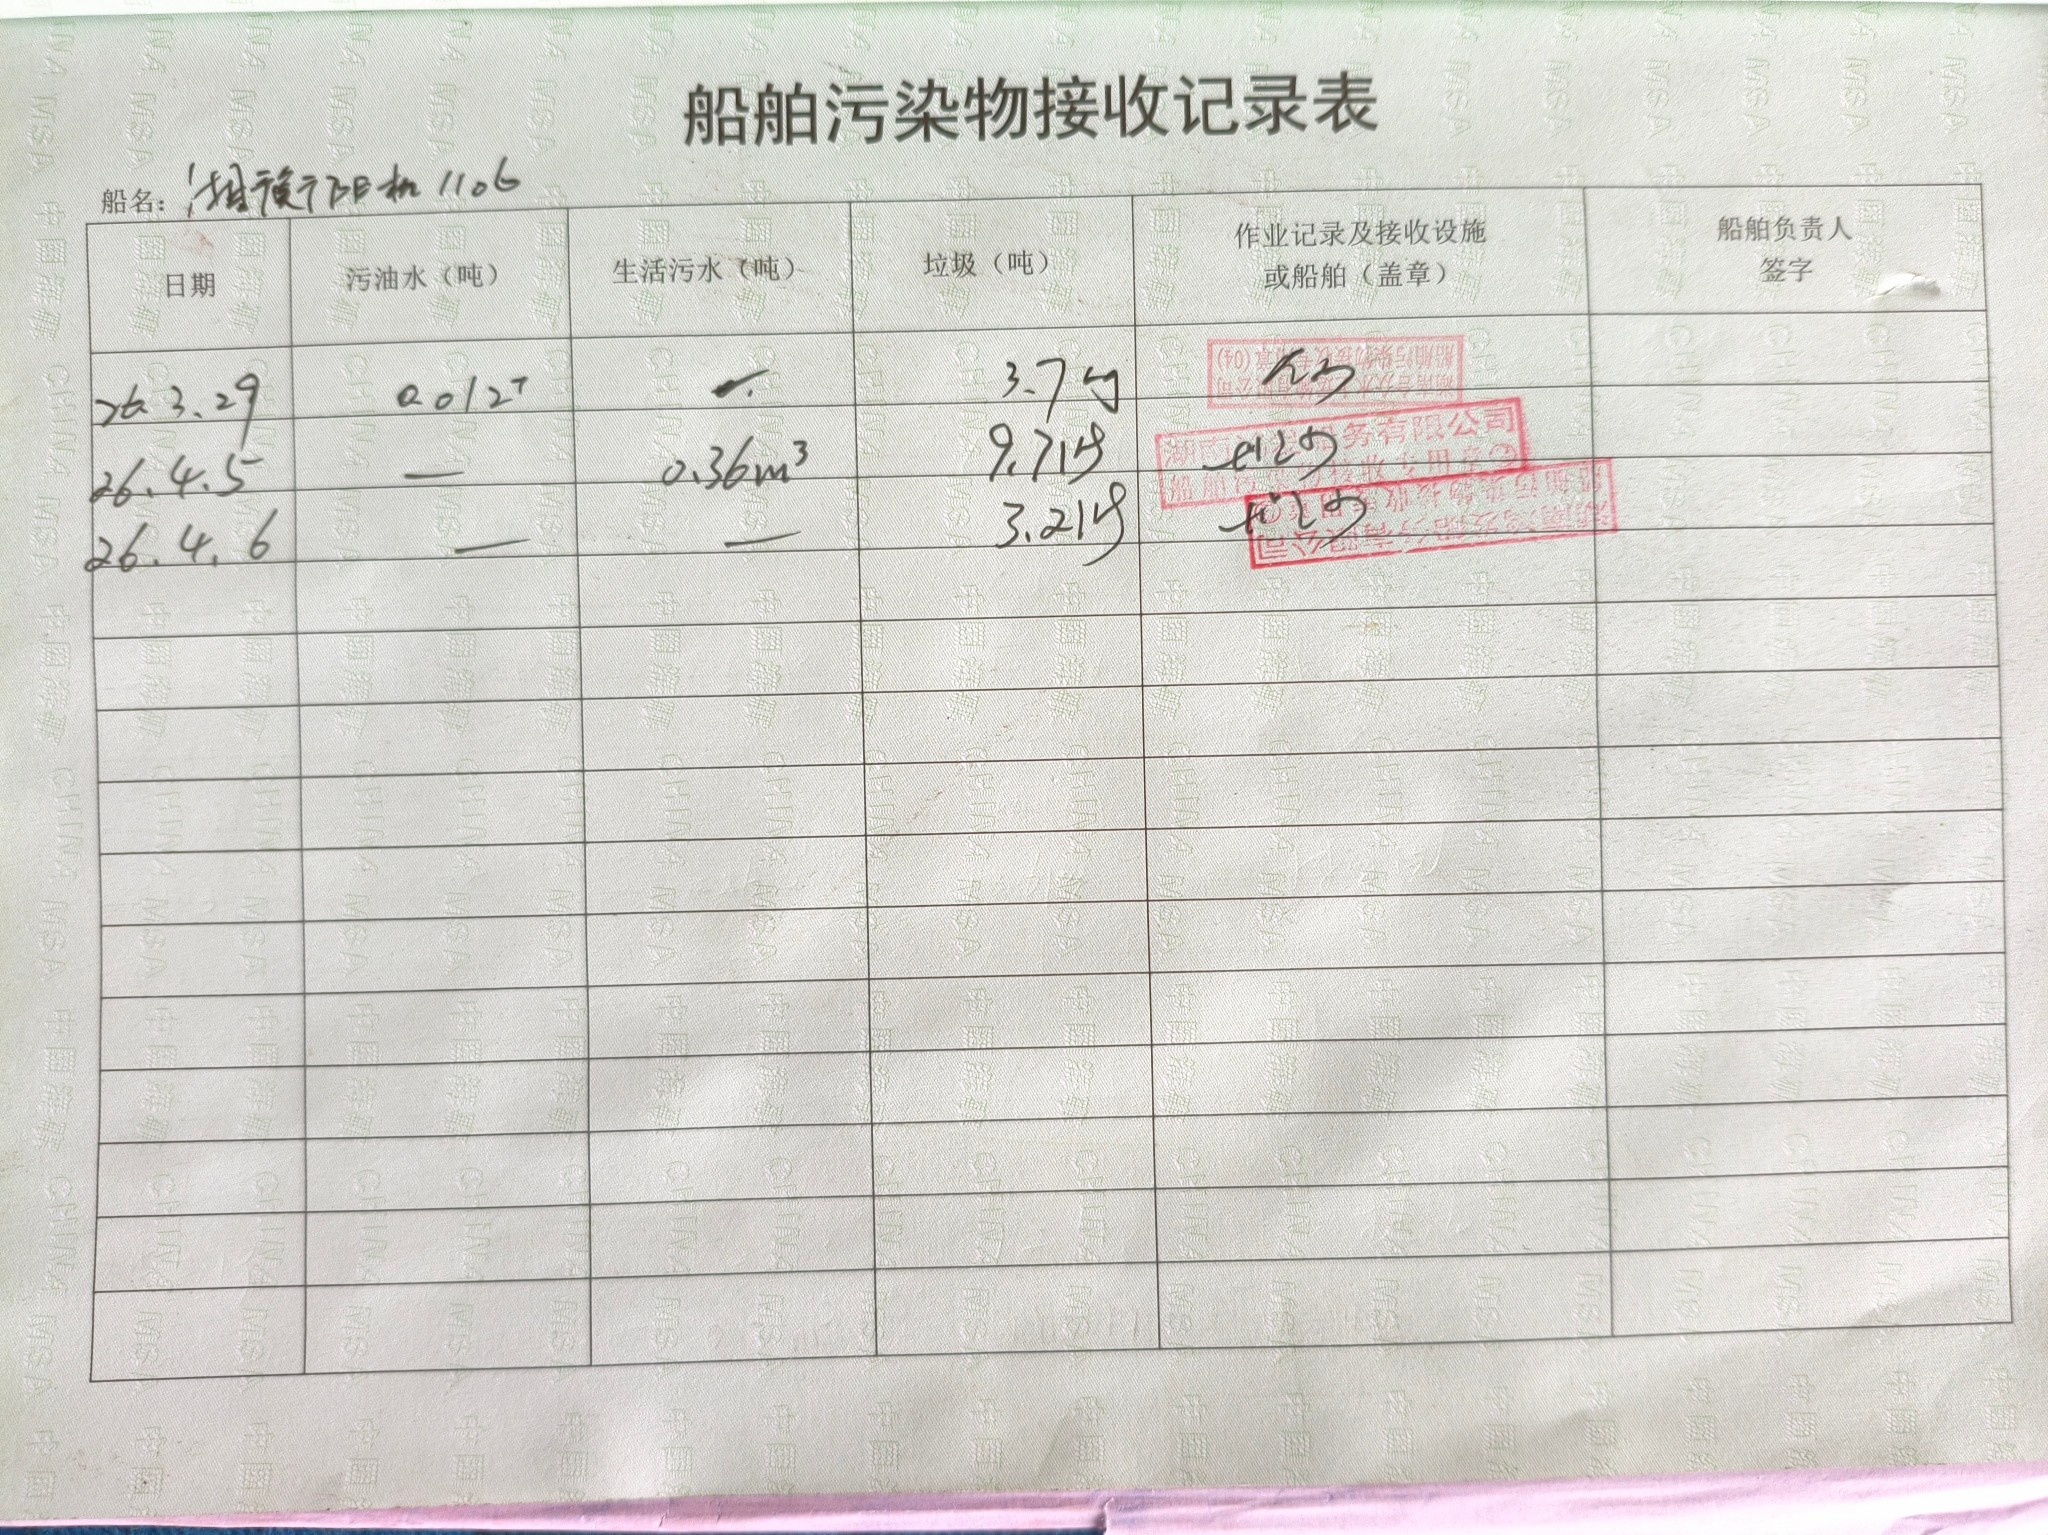 船舶污染物接收记录表
船名：湘衡阳机1106
日期 污油水（吨） 生活污水（吨） 垃圾（吨） 作业记录及接收设施或船舶（盖章） 船舶负责人签字
26.3.29 0.012T 3.7kg
26.4.5 — 0.36m³ 9.71kg
26.4.6 — — 3.21kg
船舶污染物接收专用章(04)
务有限公司